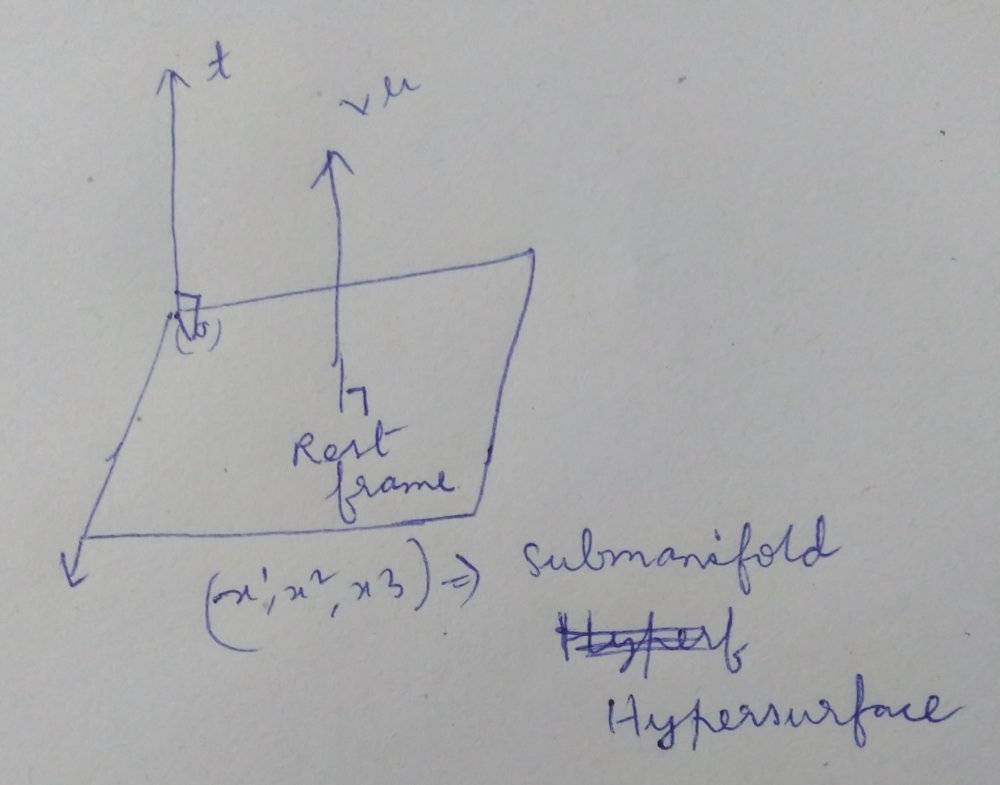 t
v^μ
(0)
Rest
frame
(x¹, x², x3) => Submanifold
Hypersurface